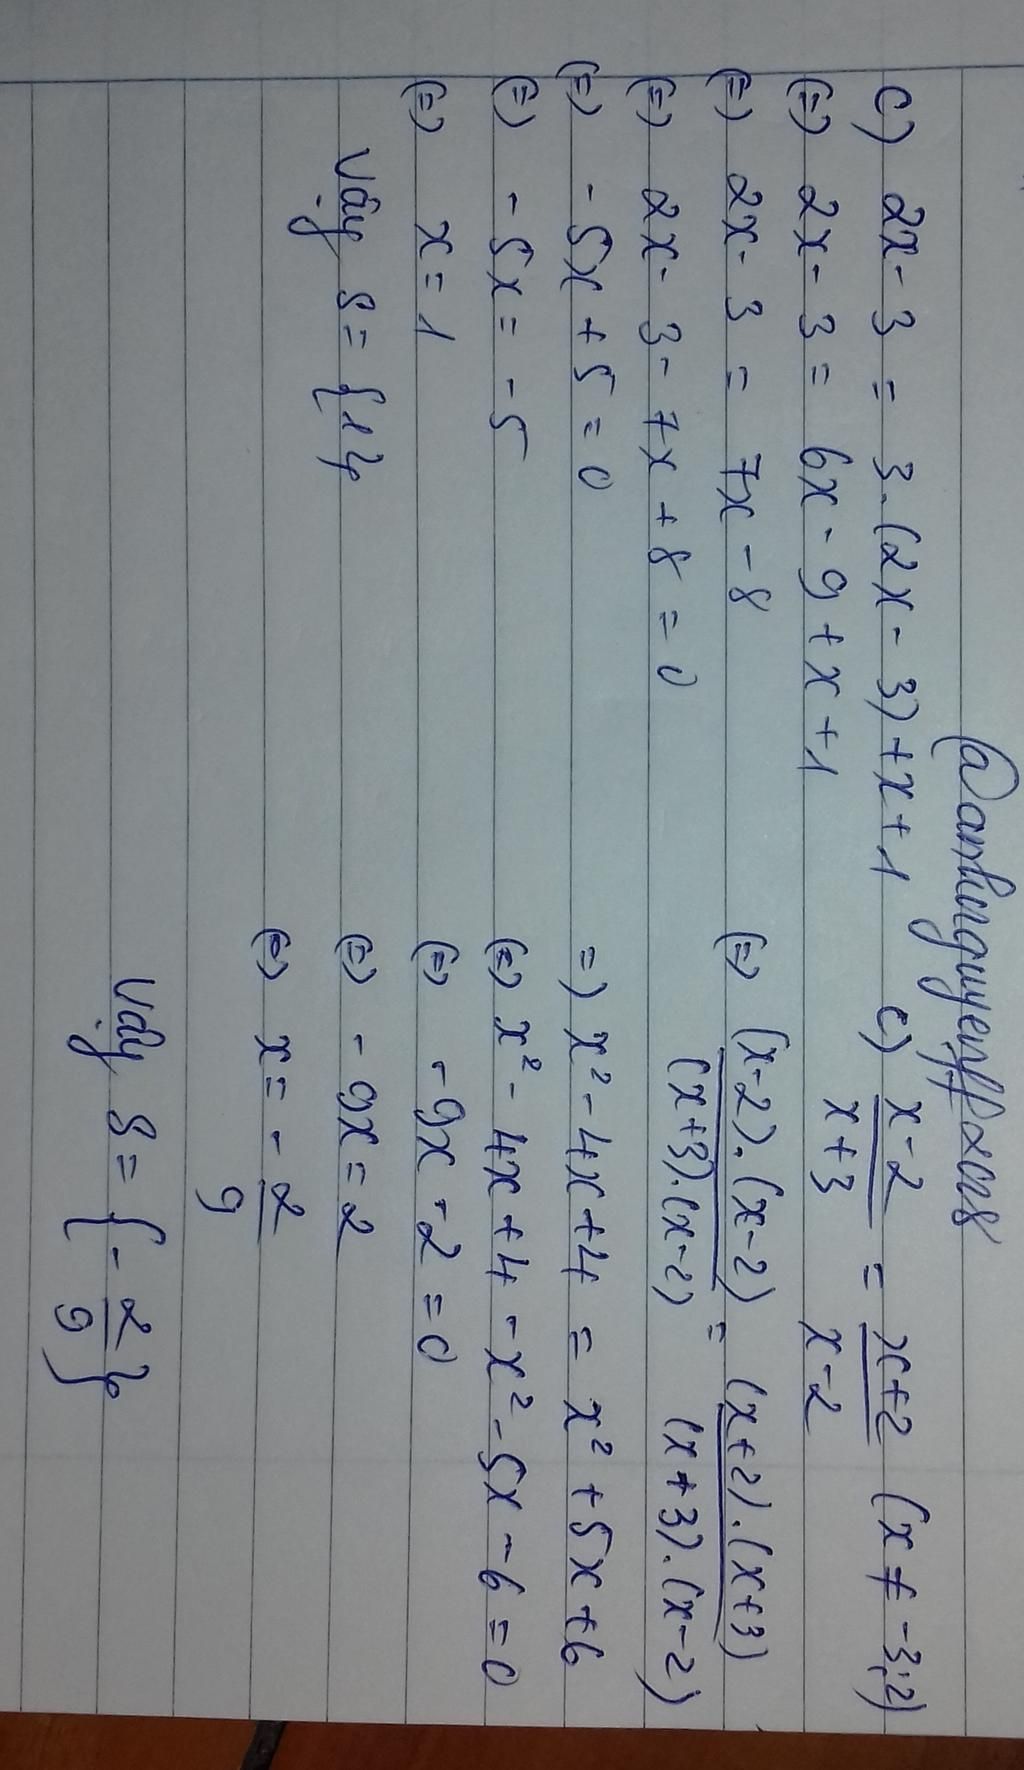 @anhnguyenff2008
c) 2x - 3 = 3.(2x - 3) + x + 1
(=) 2x - 3 = 6x - 9 + x + 1
(=) 2x - 3 = 7x - 8
(=) 2x - 3 - 7x + 8 = 0
(=) - 5x + 5 = 0
(=) - 5x = - 5
(=) x = 1
Vậy S = {1}
c) x-2/x+3 = x+2/x-2 (x ≠ -3;2)
(=) (x-2).(x-2)/(x+3).(x-2) = (x+2).(x+3)/(x+3).(x-2)
=) x² - 4x + 4 = x² + 5x + 6
(=) x² - 4x + 4 - x² - 5x - 6 = 0
(=) - 9x - 2 = 0
(=) - 9x = 2
(=) x = - 2/9
Vậy S = {- 2/9}